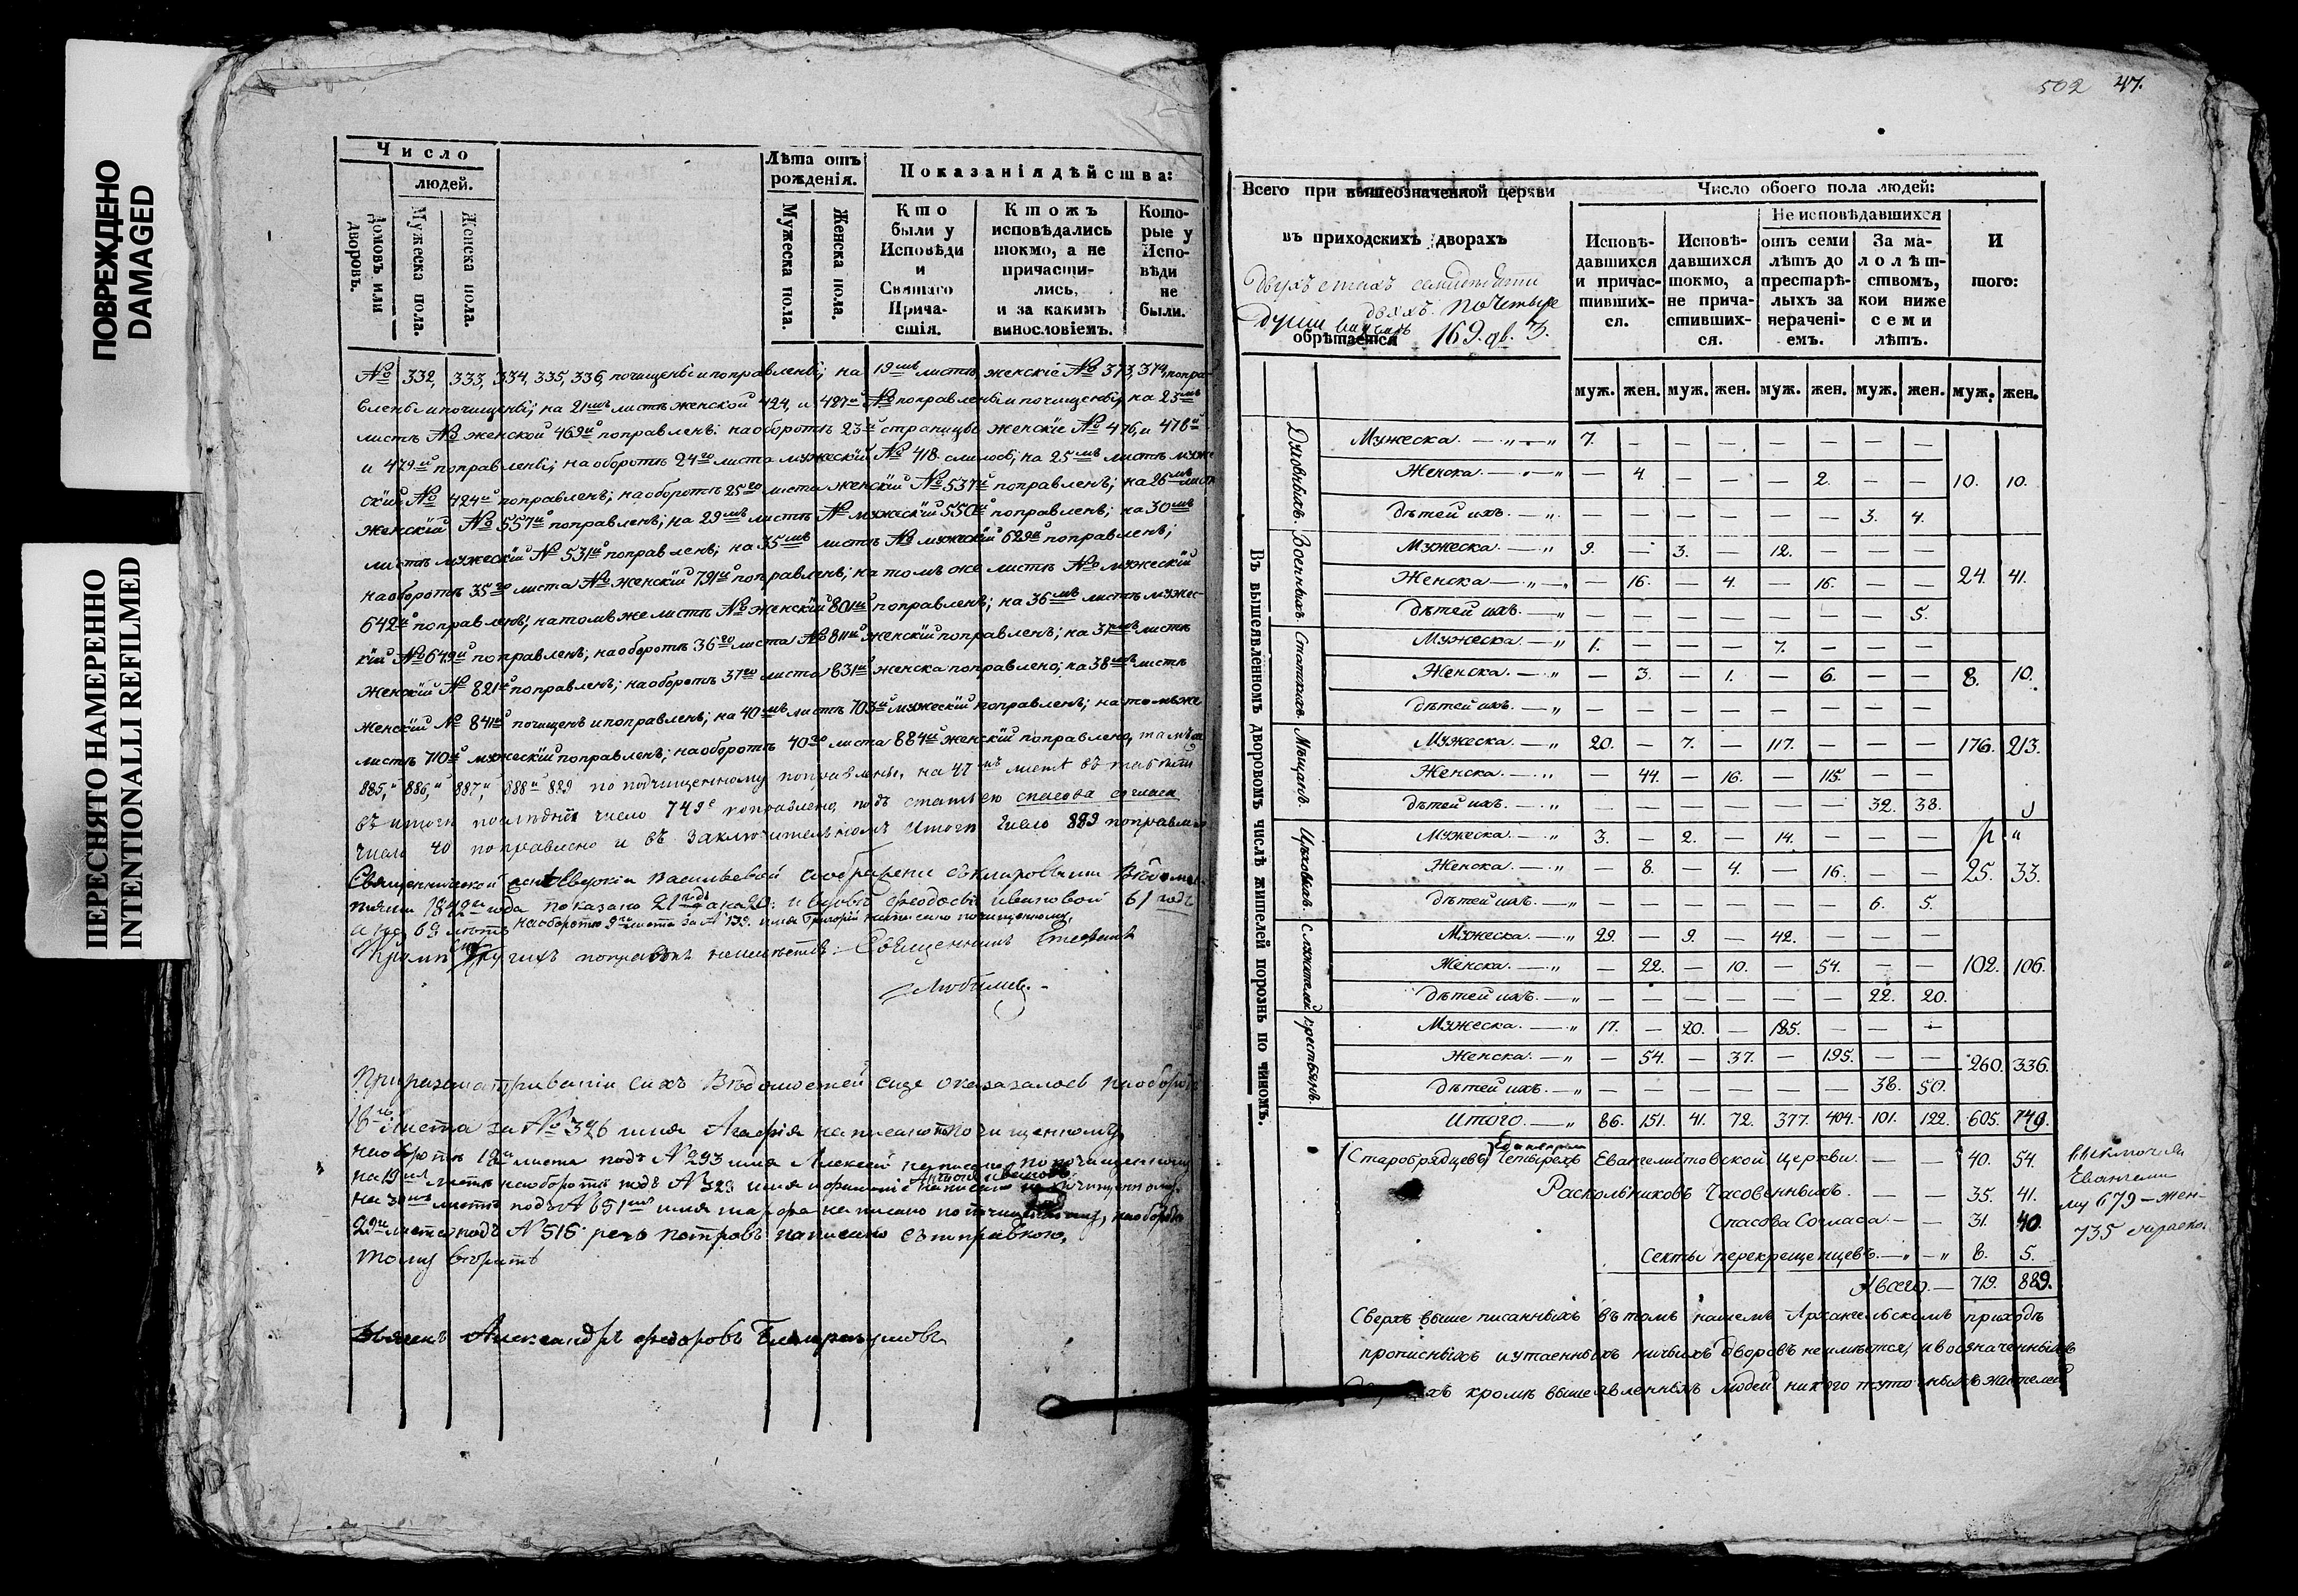 ПОВРЕЖДЕНО
DAMAGED
ПЕРЕСНЯТО НАМЕРЕННО
INTENTIONALLI REFILMED
Число
людей.
Домовъ или дворовъ.
Мужеска пола.
Женска пола.
Лѣта отъ рожденія.
Мужеска пола.
Женска пола.
Показанія дѣйства:
Кто были у Исповѣди и Святаго Прича-стія.
Ктожъ исповѣдались токмо, а не причасти-лись, и за какимъ винословіемъ.
Кото-рые у Испо-вѣди не были.
№ 332, 333, 334, 335, 336, почищены и поправлены; на 19мъ листѣ женскіе № 373, 374, попра-
влены и почищены; на 21мъ листѣ женской 424, и 427й № поправлены и почищены, на 23мъ
листѣ № женской 469й поправленъ: на оборотѣ 23й страницы женскіе № 476, и 478й
и 479й поправлены; на оборотѣ 24го листа мужескій № 418. слилось; на 25мъ листѣ муже
скій № 424й поправленъ; на оборотѣ 25го листа женскій № 537й поправленъ; на 26мъ листѣ
женскій № 557й поправленъ; на 29мъ листѣ № мужескій 550й поправленъ; на 30мъ
листѣ мужескій № 531й поправленъ; на 35мъ листѣ № мужескій 629й поправленъ;
на оборотѣ 35го листа № женскій 791й поправленъ; на томъ же листѣ № мужескій
642й поправленъ; на томъ же листѣ № женскій 801й поправленъ; на 36мъ листѣ мужес-
кій № 649й поправленъ; на оборотѣ 36го листа № 811й женскій поправленъ; на 37мъ листѣ
женскій № 821й поправленъ; на оборотѣ 37го листа 831й женска поправлено; на 38мъ листѣ
женскій № 841й почищенъ и поправленъ; на 40мъ листѣ 703й мужескій поправленъ; на томъ же
листѣ 710й мужескій поправленъ; на оборотѣ 40го листа 884й женскій поправлено, тамъ же
885, 886, 887, 888 889 по подчищенному поправлены, на 47мъ листѣ въ
въ итогѣ послѣднее число 749е поправлено, подъ статьею спасова согласа
число 40 поправлено и въ заключительномъ итогѣ число 889 поправлено
Священнической Евдокіи Васильевой
1842го года показано 21 Феодосьи Ивановой 61 годъ
на оборотѣ 9го листа за № 139. имя Григорій написано почищенному,
Кромѣ сихъ другихъ поправокъ неимѣется. Священникъ Стефанъ
Любимовъ.
При разсматриваніи сихъ Вѣдомостей еще оказалось на оборотѣ
16го листа за № 326 имя Агафія написано по чищенному,
на оборотѣ 18 листа подъ № 293 имя Алексѣй написано по почищенному
на 19мъ листѣ на оборотѣ подъ № 323 имя и фамиліе написано по чищенному.
на 30мъ листѣ подъ № 651мъ имя написано по чищенному, на оборотѣ
29го листа подъ № 516 речь Петровъ написано съ поправкою,
Александръ Федоровъ
502 47.
Всего при вышеозначенной церкви
въ приходскихъ дворахъ
почетыре
души
обрѣтается 169. дв. 3.
Число обоего пола людей:
Исповѣ-давшихся и причас-тивших-ся.
Исповѣ-давшихся токмо, а не прича-стивших-ся.
Не исповѣдавшихся
отъ семи лѣтъ до престарѣ-лыхъ за нерачені-емъ.
За ма-лолѣт-ствомъ, кои ниже семи лѣтъ.
И того:
муж. жен. муж. жен. муж. жен. муж. жен. муж. жен.
Въ вышеявленномъ дворовомъ числѣ жителей порознь по чиномъ.
Духовныхъ.
Мужеска. — 7. — — — — — — —
Женска. — — 4. — — — 2. — — 10. 10.
дѣтей ихъ. — — — — — — — 3. 4.
Военныхъ.
Мужеска. — 9. — 3. — 12. — — —
Женска — — 16. — 4. — 16. — — 24. 41.
дѣтей ихъ. — — — — — — — — 5.
Статскихъ.
Мужеска. — 1. — — — 7. — — —
Женска. — — 3. — 1. — 6. — — 8. 10.
дѣтей ихъ. — — — — — — — — —
Мѣщанъ.
Мужеска. — 20. — 7. — 117. — — — 176. 213.
Женска. — — 44. — 16. — 115. — —
дѣтей ихъ. — — — — — — — 32. 38.
Цѣховыхъ.
Мужеска. — 3. — 2. — 14. — — —
Женска. — — 8. — 4. — 16. — — 25. 33.
дѣтей ихъ. — — — — — — — 6. 5.
Служителей
Мужеска. — 29. — 9. — 42. — — —
Женска. — — 22. — 10. — 54. — — 102. 106.
дѣтей ихъ. — — — — — — — 22. 20.
крестьянъ.
Мужеска. — 17. — 20. — 185. — — —
Женска. — — 54. — 37. — 195. — — 260. 336.
дѣтей ихъ. — — — — — — — 38. 50.
Итого — 86. 151. 41. 72. 377. 404. 101. 122. 605. 749.
Старобрядцевъ Четырехъ Евангелистовской церкви. — — 40. 54.
Раскольниковъ Часовенныхъ. — — 35. 41.
Спасова Согласа — — 31. 40.
Секты перекрещенцевъ. — — 8. 5.
Авсего. — 719. 889.
му 679 — жен-
735
Сверхъ выше писанныхъ въ томъ нашемъ Архангельскомъ приходѣ
прописныхъ и утаенныхъ ничьихъ дворовъ неимѣется, и во означенныхъ
кромѣ выше явленныхъ людей никого жителей